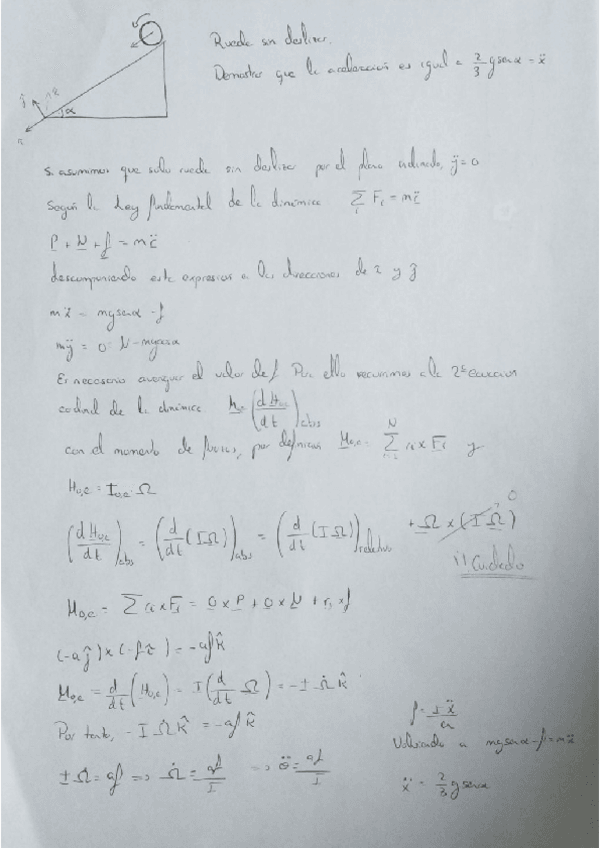 Rueda sin deslizar.
Demostrar que la aceleración es igual a 2/3 g senα = ẍ
α
Si asumimos que solo rueda sin deslizar por el plano inclinado, ÿ=0
Según la Ley fundamental de la dinámica Σ Fi = m c̈
P + N + f = m c̈
descomponiendo esta expresión a las direcciones de i y ĵ
mẍ = mg senα - f
mÿ = 0 = N - mg cosα
Es necesario averiguar el valor de f. Por ello recurrimos a la 2ª ecuación
de la dinámica. (d H0,c / dt)abs
con el momento de fuerzas, por definición M0,c = Σ ri × Fi y
H0,c = I0,c · Ω
(d H0,c / dt)abs = (d/dt (I Ω))abs = (d/dt (I Ω))relativo + Ω × (I Ω) 0
¡¡Cuidado
M0,c = Σ ri × Fi = 0 × P + 0 × N + r3 × f
(-a ĵ) × (-f î) = -af k̂
M0,c = d/dt (H0,c) = I (d/dt Ω) = -I Ω̇ k̂
Por tanto, -I Ω̇ k̂ = -af k̂
I Ω̇ = af => Ω̇ = af/I => θ̈ = af/I
f = I ẍ / a
Volviendo a mg senα - f = mẍ
ẍ = 2/3 g senα